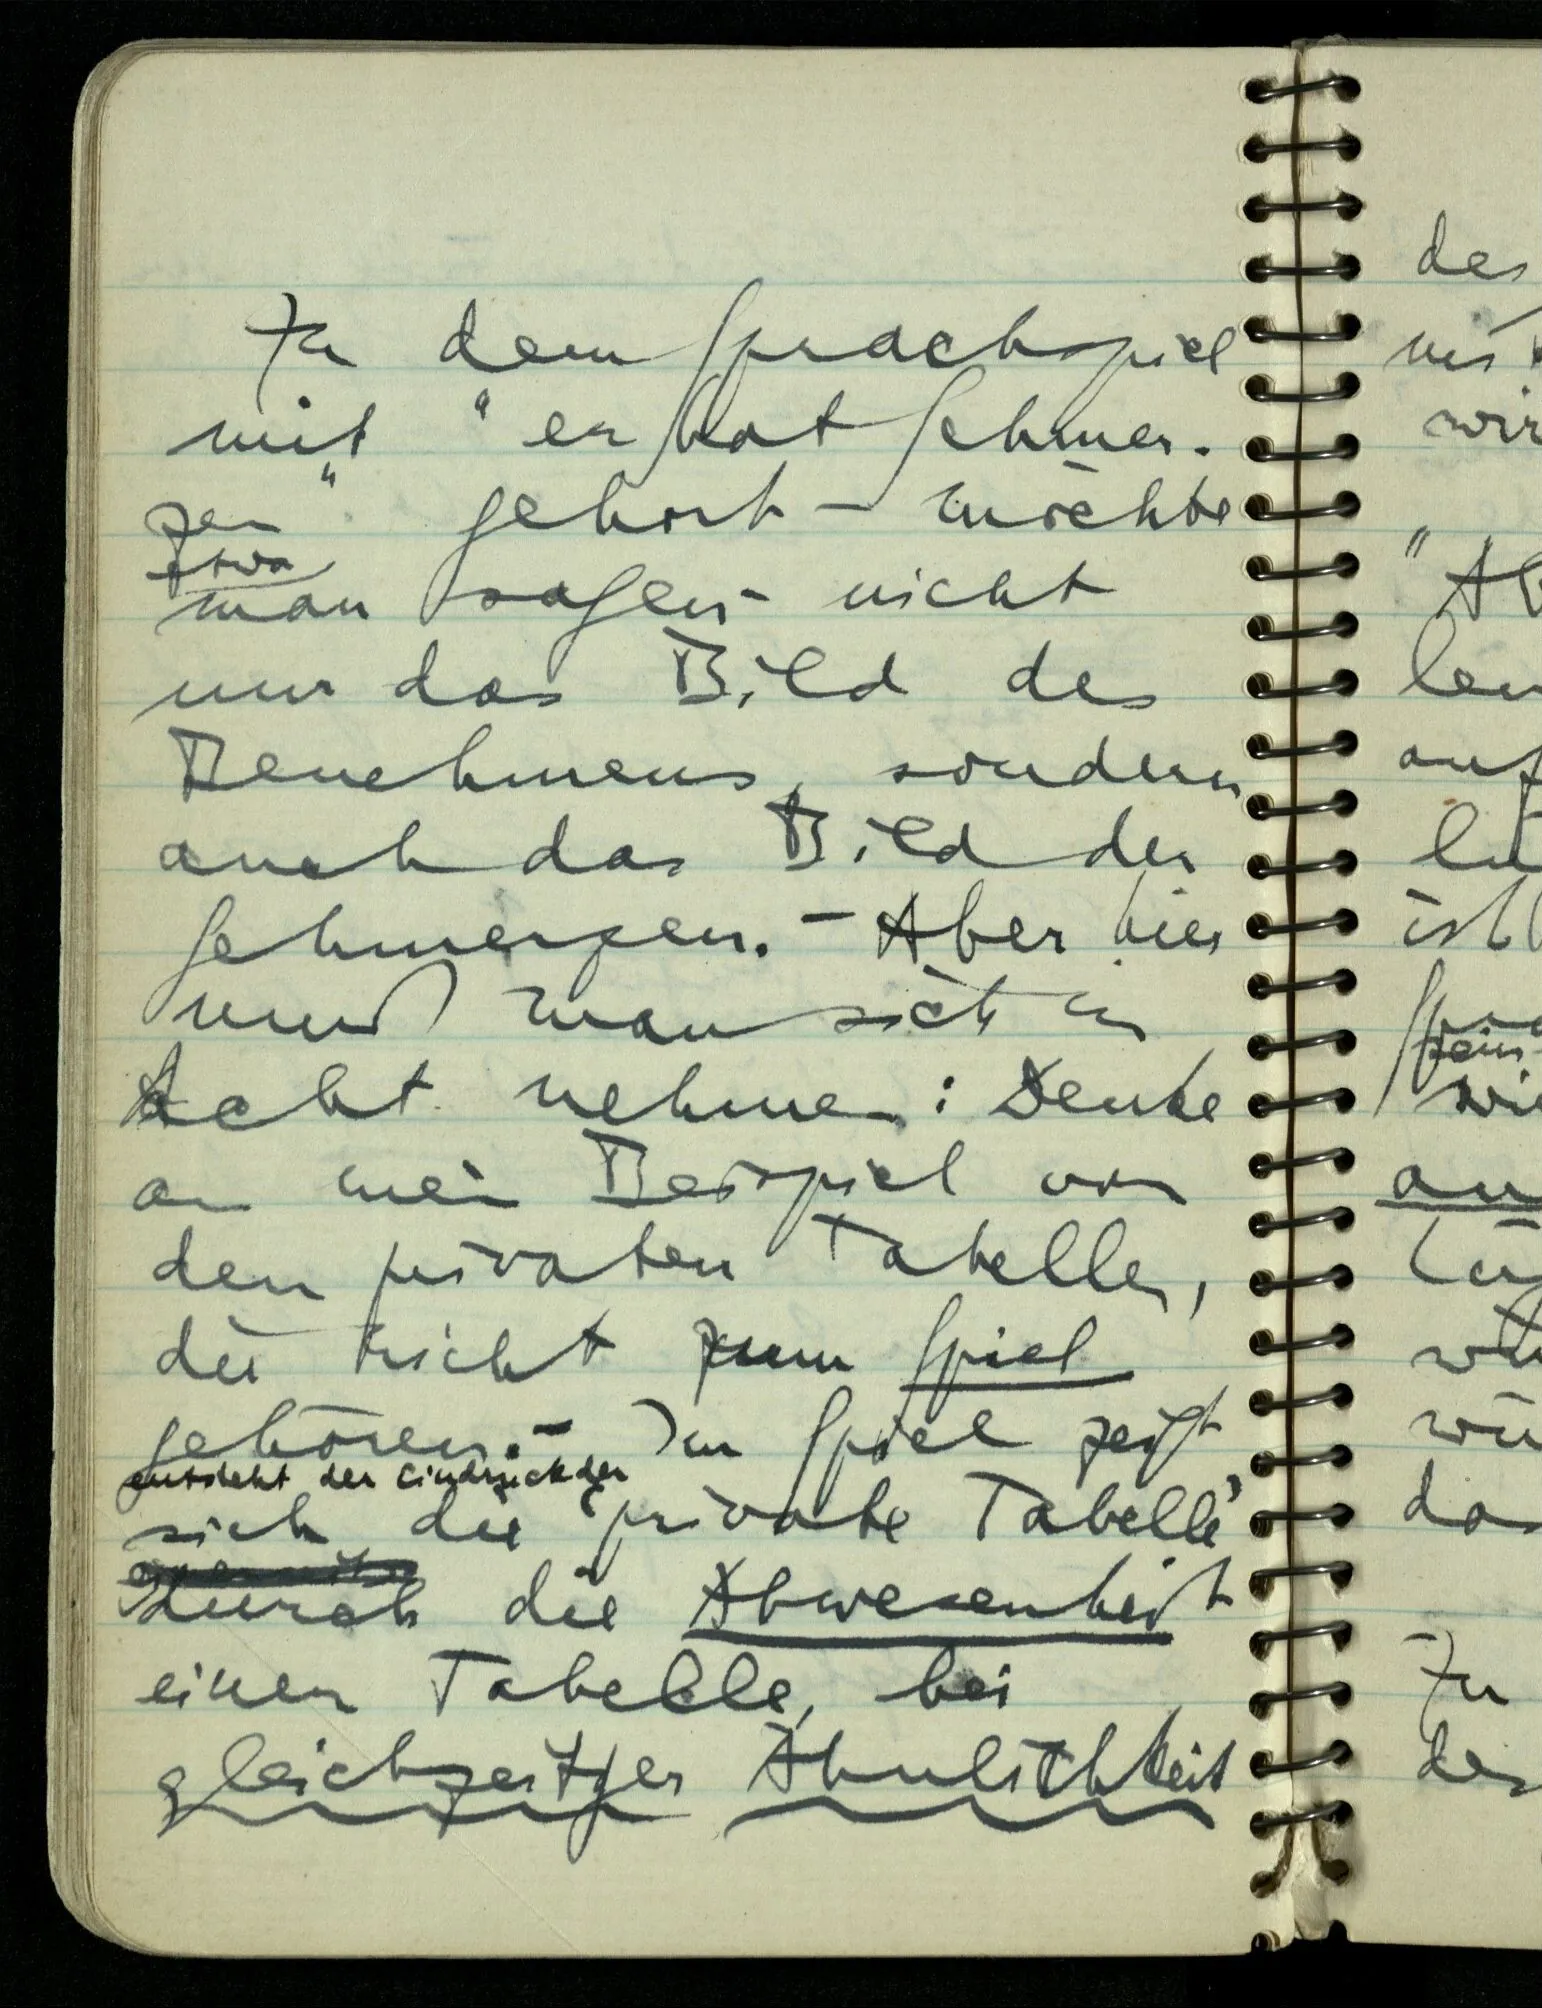 Zu dem Sprachspiel
mit "er hat Schmer-
zen" gehört – möchte
etwa
man sagen – nicht
nur das Bild des
Benehmens, sondern
auch das Bild der
Schmerzen. – Aber hier
muß man sich in
Acht nehmen: Denke
an mein Beispiel von
den privaten Tabellen,
die nicht zum Spiel
gehören. – Im Spiel zeigt
entsteht der Eindruck der
sich die "private Tabelle"
durch die Abwesenheit
einer Tabelle, bei
gleichzeitiger Ähnlichkeit
des
wir
"Ab
auf
ist
an
das
Zu